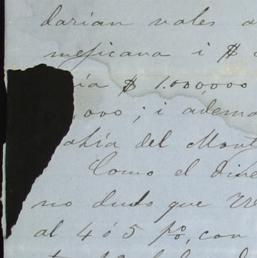 darían vales a
mejicana i $
ía $ 1.000,000
,000; i adema
ahía del Mont
Como el dine
no dudo que
al 4 ó 5 p%, con